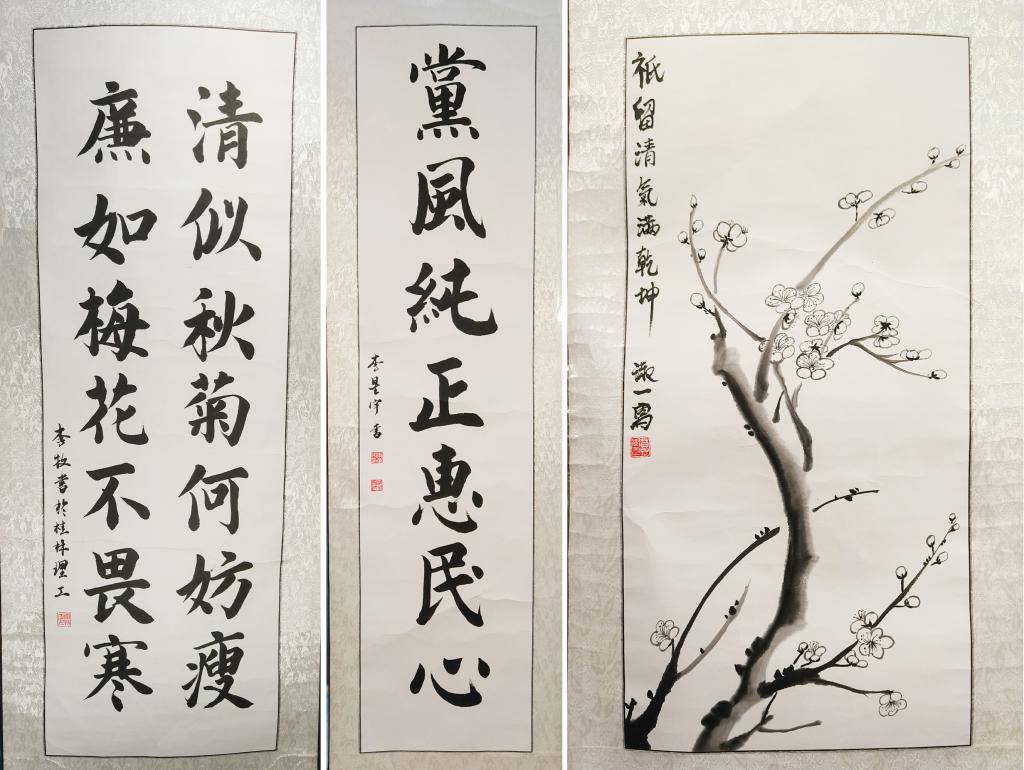 清似秋菊何妨瘦
廉如梅花不畏寒
李牧書於桂林理工
黨風純正惠民心
李星宇書
祇留清氣滿乾坤
淑一寫